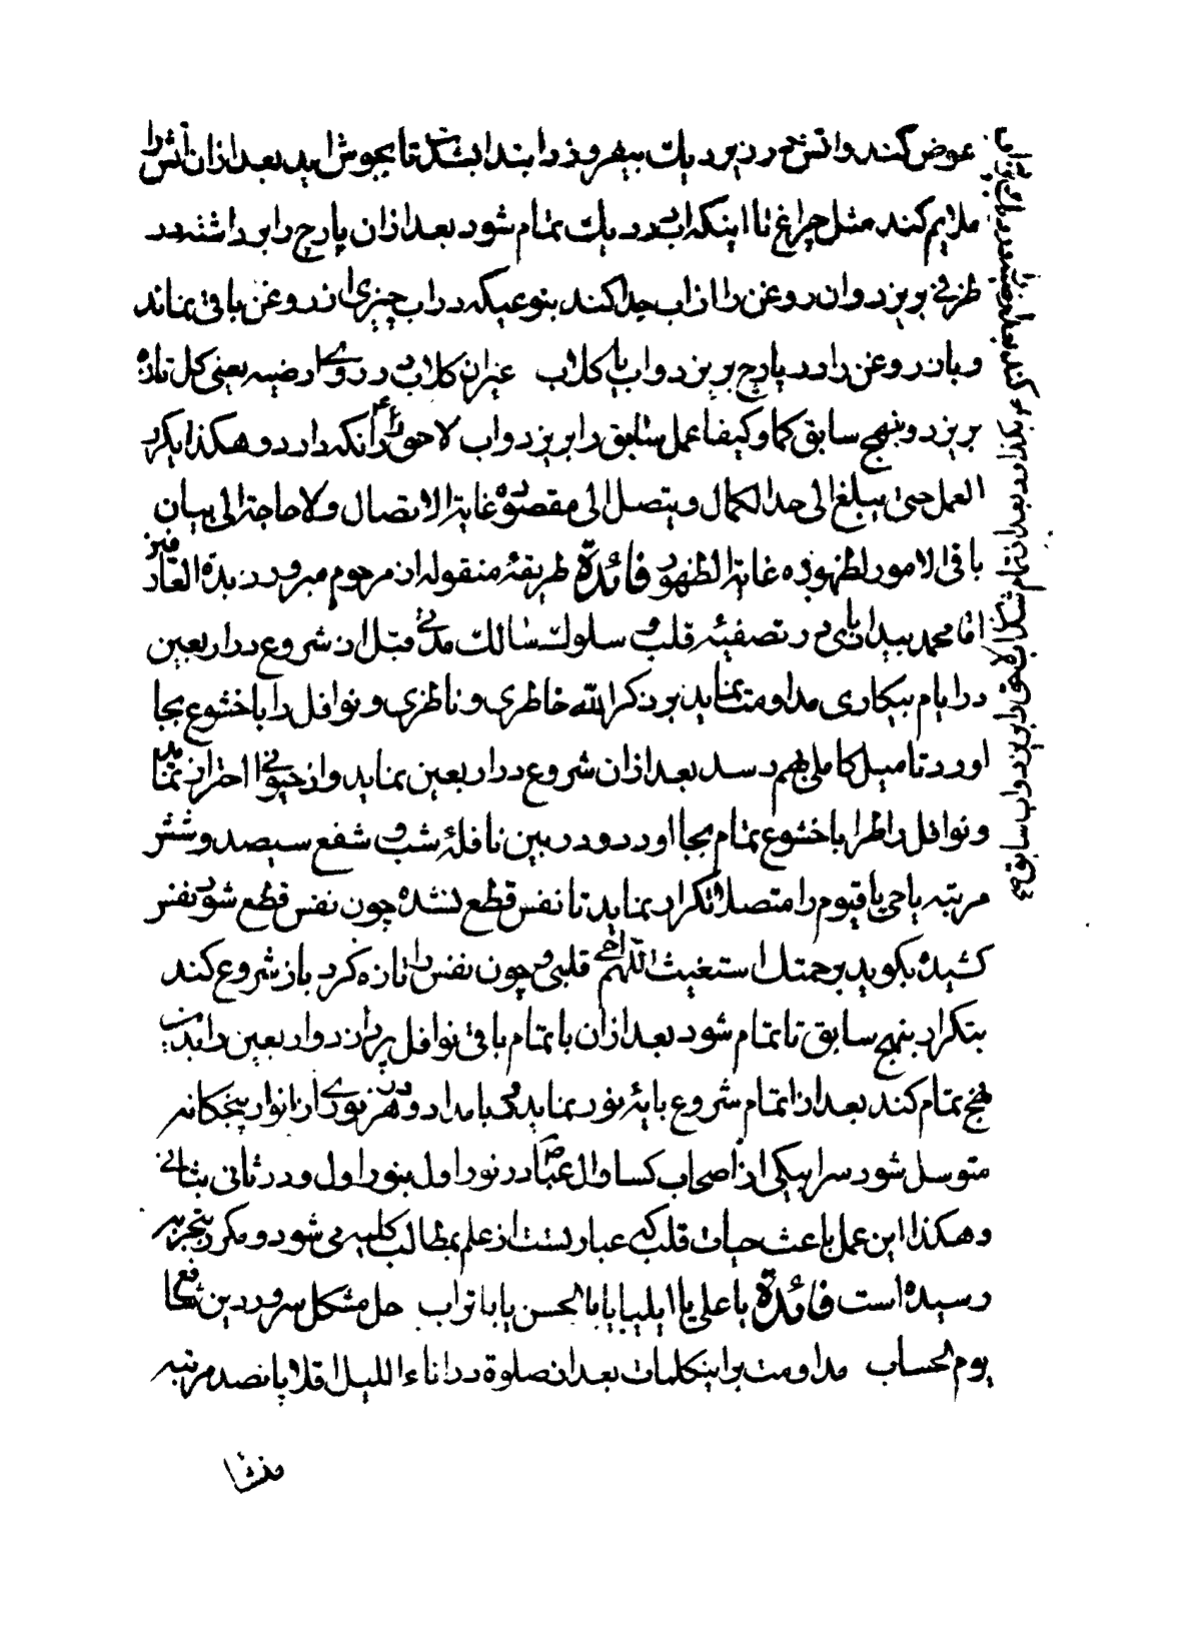 عوض کنند و اتش در زیر دیك بیفروزد ابتدا بشدت تا بجوش اید بعد ازان اتش را
ملایم کند مثل چراغ تا اینکه اب در دیك تمام شود بعد ازان پارچ را برداشته در
ظرفی بریزد و ان روغن را از اب جدا کند بنوعیکه در اب چیزی از روغن باقی نماند
و باز روغن را در پارچ بریزد و اب یا کلاب عبران کلاب در روی ارضیه یعنی کل تازه
بریزد و بنهج سابق کما و کیفا عمل سابق را بریزد و اب لاحق را نکه دارد و هکذا یکرر
العمل حتی یبلغ الی حد الکمال و یتصل الی مقصوده غایة الاتصال و لا حاجة الی بیان
باقی الامور لظهوره غایة الظهور فائدة طریقهٔ منقوله از مرحوم مبرور زبدة العارفین
اقا محمد بیدابادی در تصفیهٔ قلب و سلوك سالك مدتی قبل از شروع در اربعین
در ایام بیکاری مداومت نماید بر ذکر الله خاطری و ناظری و نوافل را با خشوع بجا
اورد تا میل کاملی بهم رسد بعد ازان شروع در اربعین نماید و از حیوانی احتراز نماید
و نوافل را طرا با خشوع تمام بجا اورد و در بین نافلهٔ شب و شفع سیصد و شش
مرتبه یا حی یا قیوم را متصلا تکرار نماید تا نفس قطع نشده چون نفس قطع شود نفس
کشیده بکوید برحمتك استغیث اللهم احی قلبی و چون نفس را تازه کرد باز شروع کند
بتکرار بنهج سابق تا تمام شود بعد ازان با تمام باقی نوافل پردازد و اربعین را بدین
نهج تمام کند بعد از اتمام شروع بایهٔ نور نماید بامداد و در هر نوری از انوار پنجکانه
متوسل شود سرا بیکی از اصحاب کسا و ال عبا در نور اول بنور اول و در ثانی بثانی
و هکذا این عمل باعث حیات قلب که عبارتست از علم بمطالب کلیه می شود و مکرر بتجربه
رسیده است فائدة یا علی یا ایلیا یا باالحسن یا باتراب حل مشکل سرور دین شافع
یوم الحساب مداومت بر اینکلمات بعد از صلوة در اناء اللیل اقلا پانصد مرتبه
بکذارد بعد از تمام شدن اب لاحق را بریزد و اب سابق